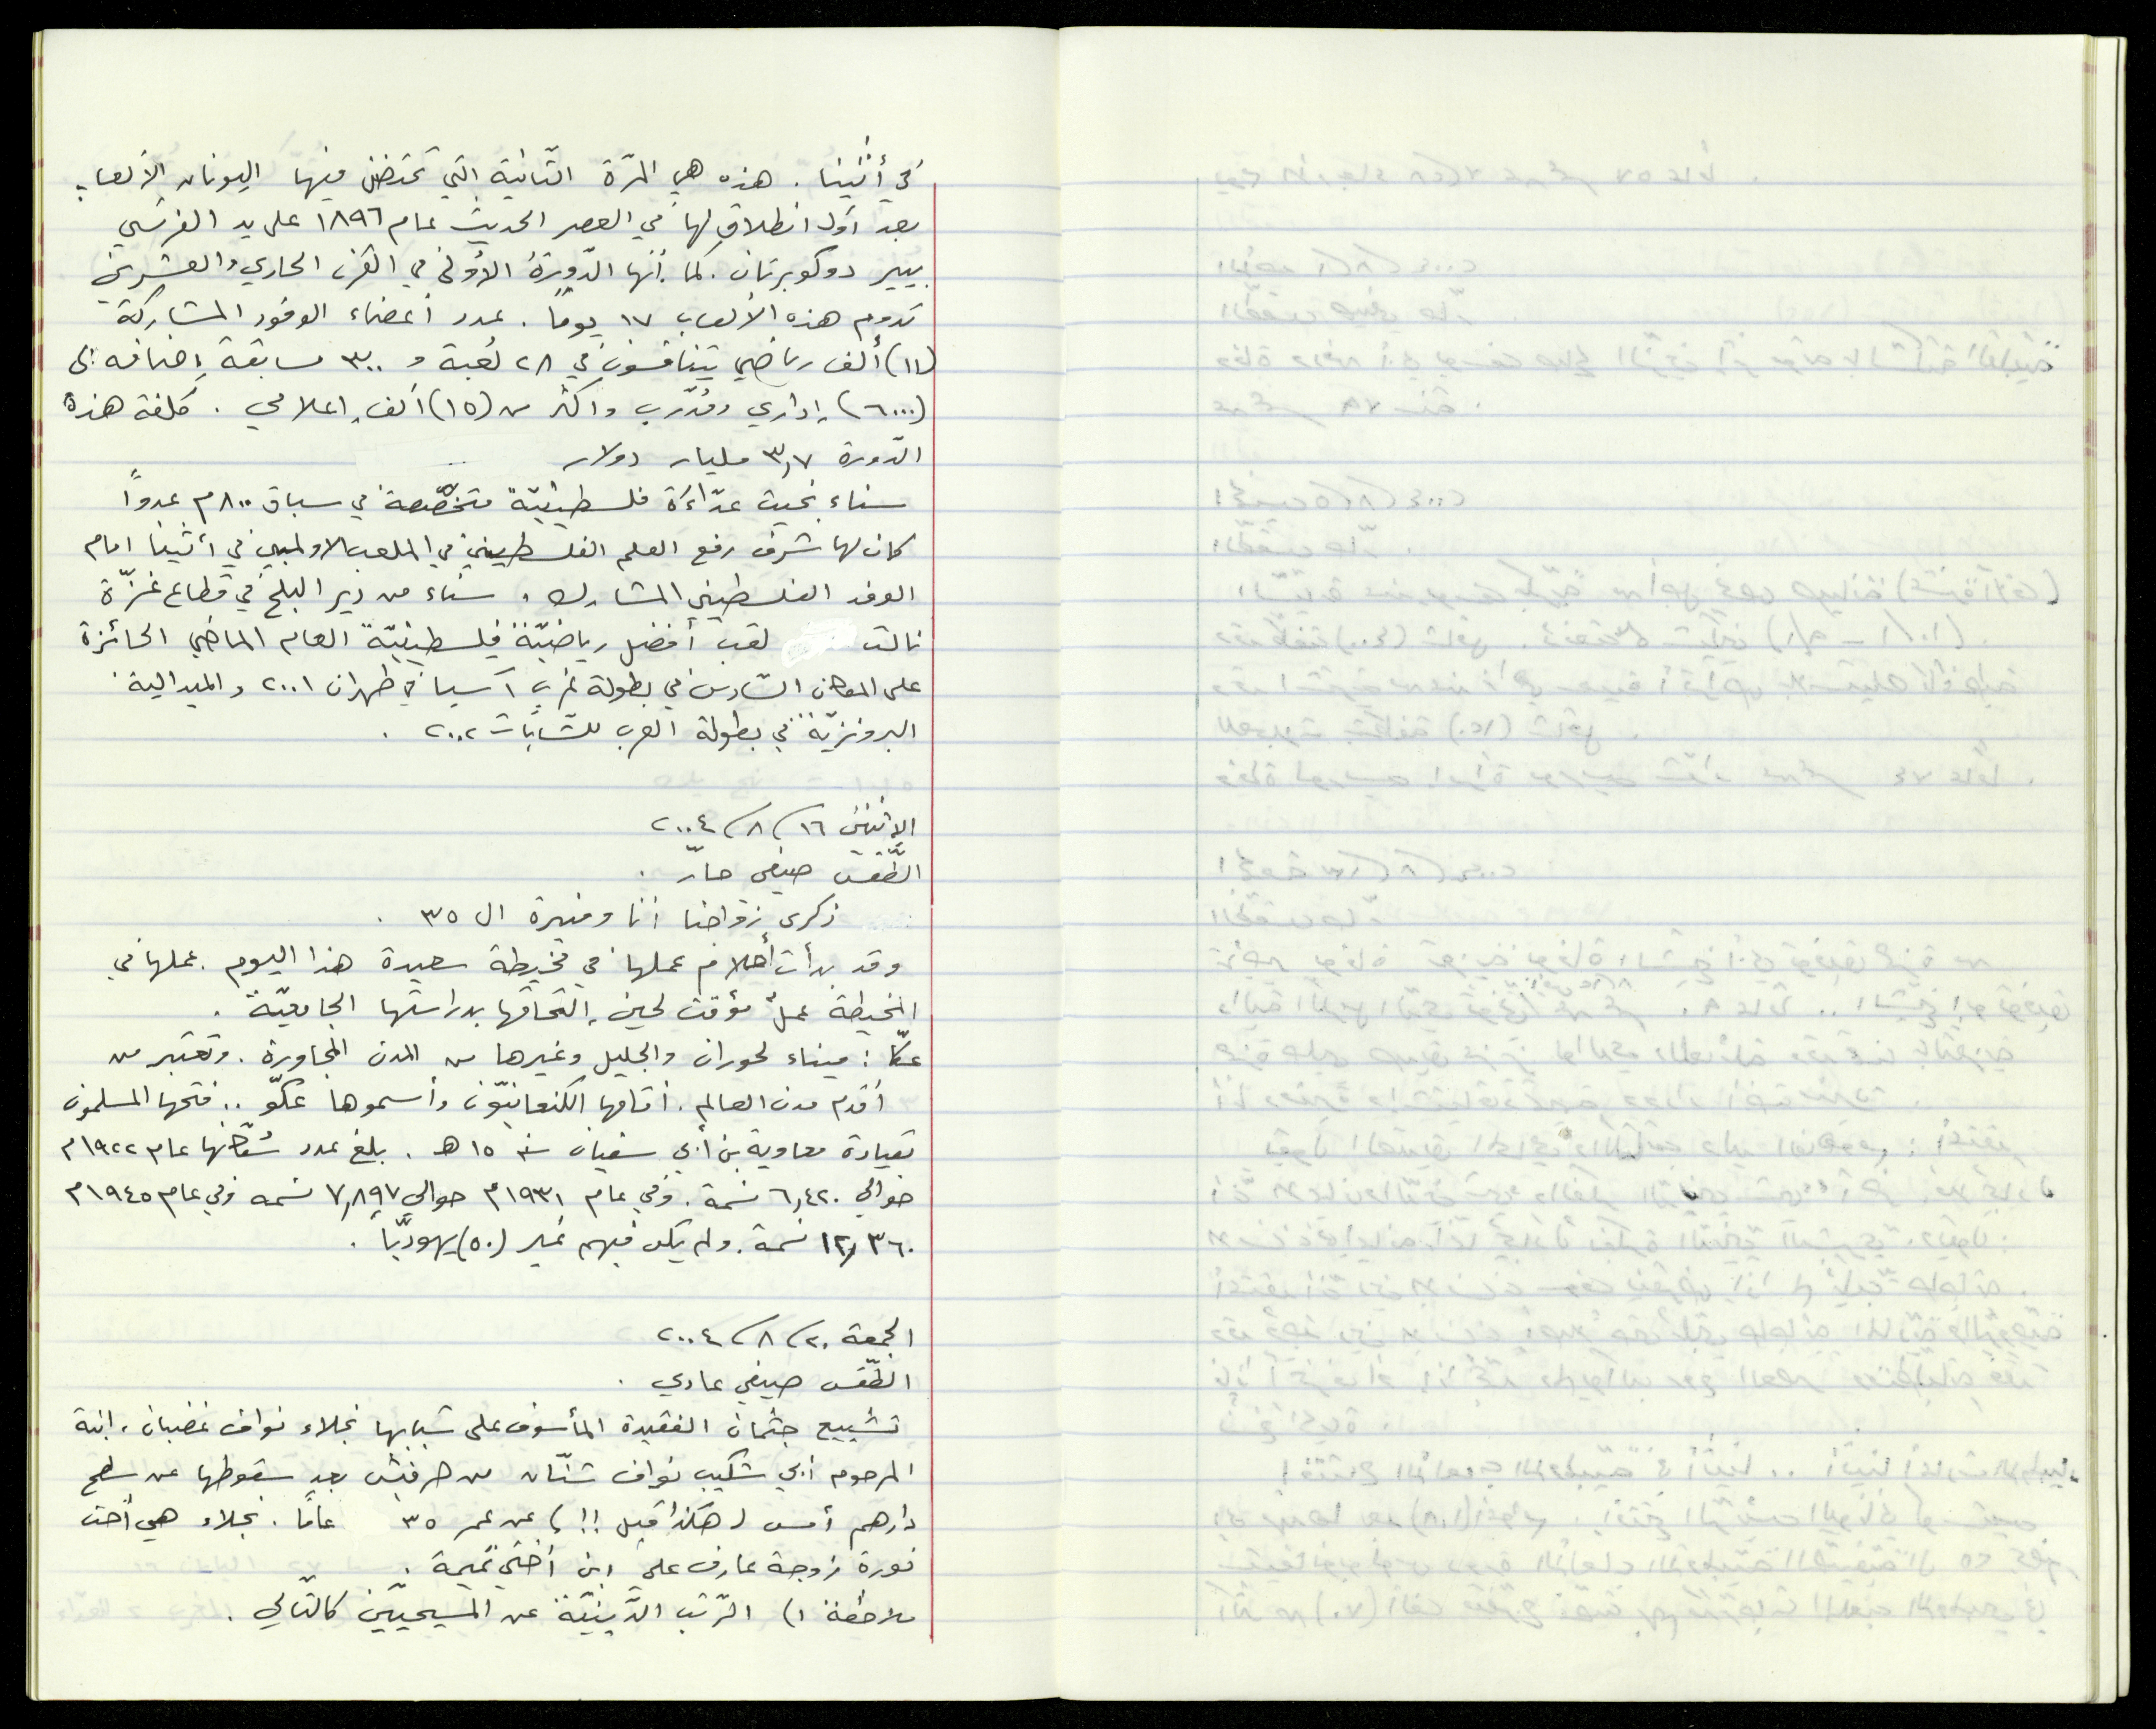 في أثينا. هذه هي المرّة الثّانية التي تحتضن فيها اليونان الألعاب
بعد أوّل انطلاق لها في العصر الحديث عام ١٨٩٦ على يد الفرنسي
بيير دو كوبرتان. كما أنها الدّورة الأولى في القرن الحادي والعشرين
تدوم هذه الألعاب ١٧ يومًا. عدد أعضاء الوفود المشاركة
(١١) ألف رياضي يتنافسون في ٢٨ لعبة و ٣٠٠ مسابقة إضافه إلى
(٦٠٠٠) إداري ومُدّرب وأكثر من (١٥) ألف إعلامي. كلفة هذه
الدّورة ٣,٧ مليار دولار
سناء بخيت عدّاءَة فلسطينيّة متخصّصة في سباق ٨٠٠م عدوًا
كان لها شرف رفع العلم الفلسطيني في الملعب الاولمبي في أثينا امام
الوفد الفلسطيني المشارك. سناء من دير البلح في قطاع غزّة
نالت لقب أفضل رياضيّة فلسطينيّة العام الماضي الحائزة
على المكان السّادس في بطولة غرب آسيا في طهران ٢٠٠١ والميدالية
البرونزيّة في بطولة العرب للشّابات ٢٠٠٢.
الإثنين ١٦/٨/٢٠٠٤
الطّقس صيفي حارّ.
ذكرى زواجنا أنا ومنيرة ال ٣٥.
وقد بدأت أحلام عملها في مخيطة سعيدة هذا اليوم. عملها في
المخيطة عملٌ مؤقت لحين إلتحاقها بدراستها الجامعيّة.
عكّا: ميناء لحوران والجليل وغيرها من المدن المجاورة. وتعتبر من
أقدم مدن العالم. أقامها الكنعانيّون وأسموها عكّو.. فتحها المسلمون
بقيادة معاوية بن أبي سفيان سنه ١٥ هـ. بلغ عدد سُكّانها عام ١٩٢٢م
حوالي ٦,٤٢٠ نسمة. وفي عام ١٩٣١م حوالي ٧,٨٩٧ نسمه وفي عام ١٩٤٥م
١٢,٣٦٠ نسمة. ولم يكن فيهم غير (٥٠) يهوديًّا.
الجمعة ٢٠/٨/٢٠٠٤
الطّقس صيفي عادي.
تشييع جثمان الفقيدة المأسوف على شبابها نجلاء نواف غضبان، ابنة
المرحوم أبي شكيب نواف شنّان من حرفيش بعد سقوطها عن سطح
دارهم أمس (هكذا قيل!!) عن عمر ٣٥ عامًا. نجلاء هي أخت
نورة زوجة عارف علي ابن أختي نميمة.
ملاحظة ١) الرّتب الدّينيّة عن المسيحيّين كالتّالي.